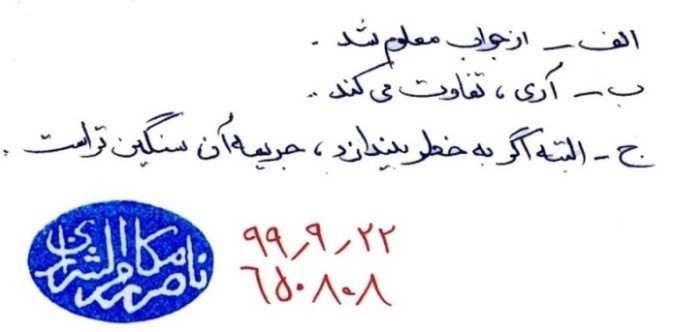 الف ـ از جواب معلوم شد .
ب ـ آری ، تفاوت می کند .
ج ـ البته اگر به خطر بیندازد ، جریمه آن سنگین تر است .
ناصر مکارم الشیرازی
۹۹٫۹٫۲۲
۶۵۰۸۰۸